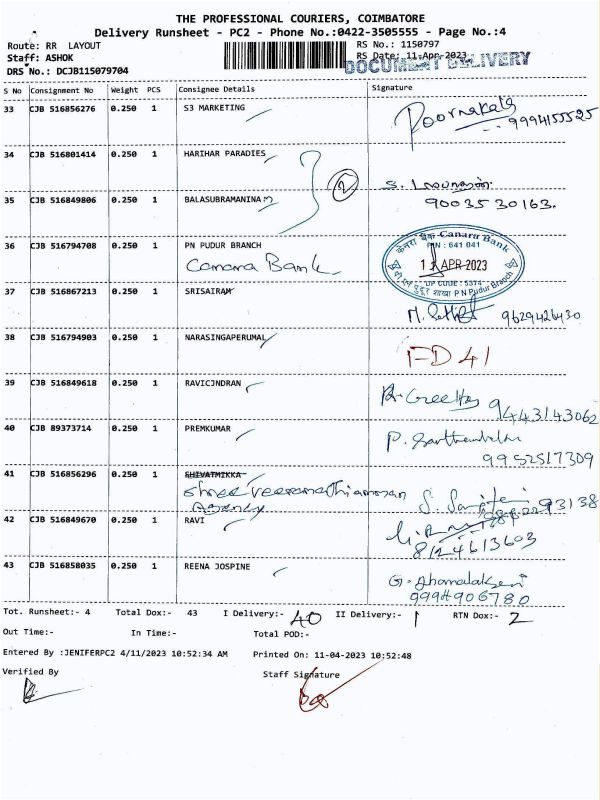 THE PROFESSIONAL COURIERS, COIMBATORE
Delivery Runsheet - PC2 - Phone No.:0422-3505555 - Page No.:4
Route: RR LAYOUT
RS No.: 1150797
Staff: ASHOK
RS Date: 11-Apr-2023
DOCUMENT DELIVERY
DRS No.: DCJB115079704
S No Consignment No Weight PCS Consignee Details Signature
33 CJB 516856276 0.250 1 S3 MARKETING Poornakala
9994155525
34 CJB 516801414 0.250 1 HARIHAR PARADIES
2
35 CJB 516849806 0.250 1 BALASUBRAMANINAM 90035 30163.
36 CJB 516794708 0.250 1 PN PUDUR BRANCH
Canara Bank
केनरा बैंक Canara Bank
PIN : 641 041
APR 2023
DP CODE : 5374
शाखा P N Pudur Branch
37 CJB 516867213 0.250 1 SRISAIRAM
9629426430
38 CJB 516794903 0.250 1 NARASINGAPERUMAL FD 41
39 CJB 516849618 0.250 1 RAVICJNDRAN
9443143062
40 CJB 89373714 0.250 1 PREMKUMAR
9952517309
41 CJB 516856296 0.250 1 SHIVATMIKKA
Agency
42 CJB 516849670 0.250 1 RAVI
8124613603
43 CJB 516858035 0.250 1 REENA JOSPINE
9994906780
Tot. Runsheet:- 4 Total Dox:- 43 I Delivery:- 40 II Delivery:- 1 RTN Dox:- 2
Out Time:- In Time:- Total POD:-
Entered By :JENIFERPC2 4/11/2023 10:52:34 AM Printed On: 11-04-2023 10:52:48
Verified By Staff Signature